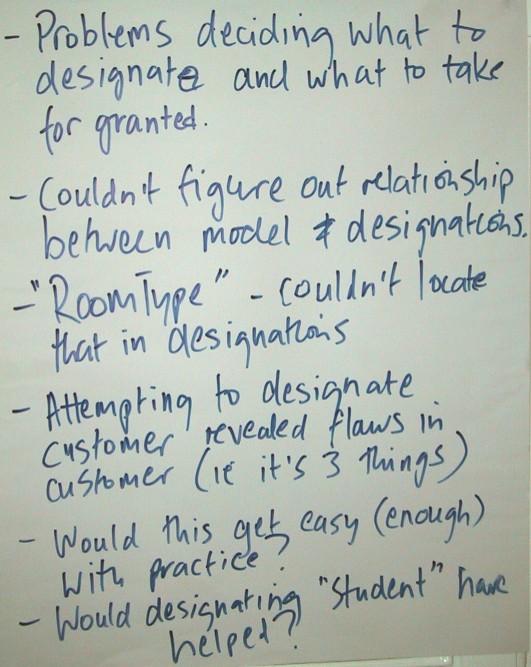 - Problems deciding what to
designate and what to take
for granted.
- Couldn't figure out relationship
between model & designations.
- "RoomType" - couldn't locate
that in designations
- Attempting to designate
customer revealed flaws in
customer (ie it's 3 things)
- Would this get easy (enough)
with practice?
- Would designating "Student" have
helped?